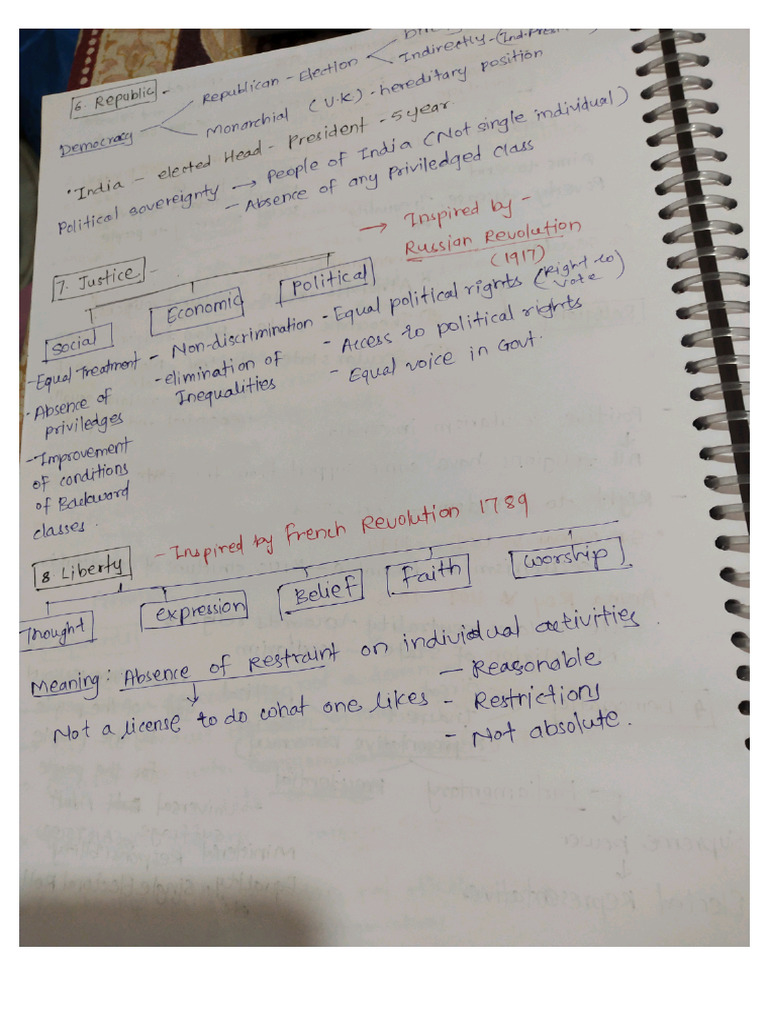 Indirectly - (Ind-Presi
6. Republic -
Republican - Election
Democracy
Monarchial (U.K) - hereditary position
• India - elected Head - President - 5 year.
Political sovereignty → People of India (Not single individual)
- Absence of any Priviledged class
→ Inspired by -
Russian Revolution
(1917)
7. Justice -
Social
Economic
Political
- Equal Treatment
- Absence of
priviledges
- Improvement
of conditions
of Backward
classes.
- Non-discrimination
- elimination of
Inequalities
- Equal political rights (Right to
vote)
- Access to political rights
- Equal voice in Govt.
- Inspired by French Revolution 1789
8. Liberty
Thought
expression
Belief
Faith
worship
Meaning: Absence of Restraint on individual activities.
↓
Not a license to do what one likes
- Reasonable
- Restrictions
- Not absolute.